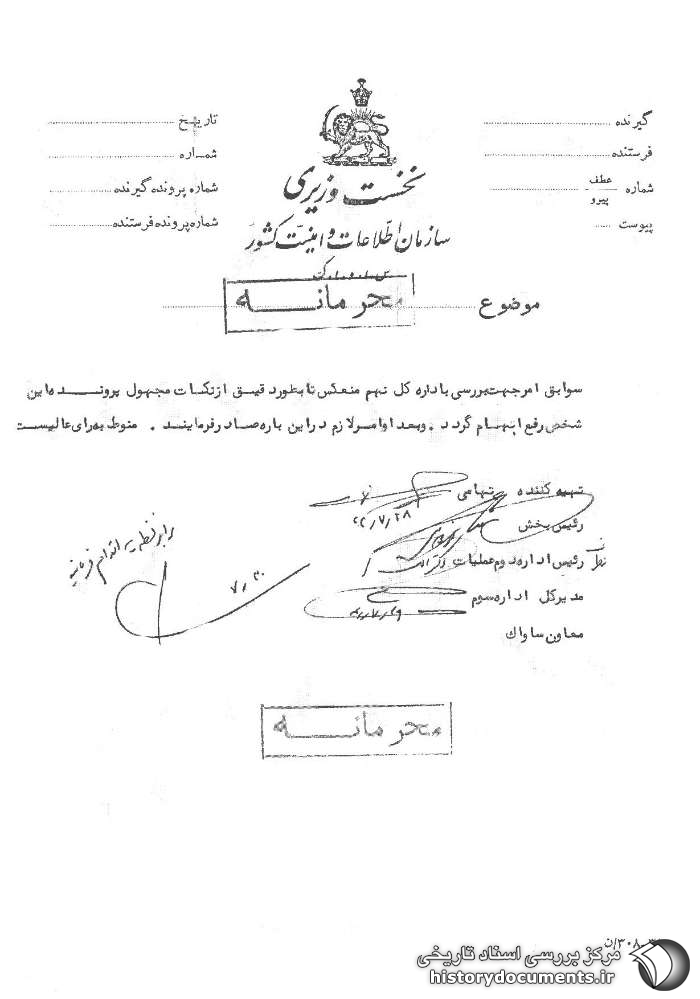 گیرنده
فرستنده
شماره عطف پیرو
پیوست
تاریخ
شماره
شماره پرونده گیرنده
شماره پرونده فرستنده
نخست وزیری
سازمان اطلاعات و امنیت کشور
س.ا.و.ا.ک
موضوع
محرمانه
سوابق امر جهت بررسی باداره کل نهم منعکس تا بطور دقیق از نکات مجهول پرونده این
شخص رفع ابهام گردد . و بعد اوامر لازم در این باره صادر فرمایند . منوط به رای عالیست
تهیه کننده تهامی
رئیس بخش
رئیس اداره دوم عملیات
مدیر کل اداره سوم
معاون ساواک
برابر نظریه اقدام فرمائید
۷/۳۰
محرمانه
مرکز بررسی اسناد تاریخی
historydocuments.ir